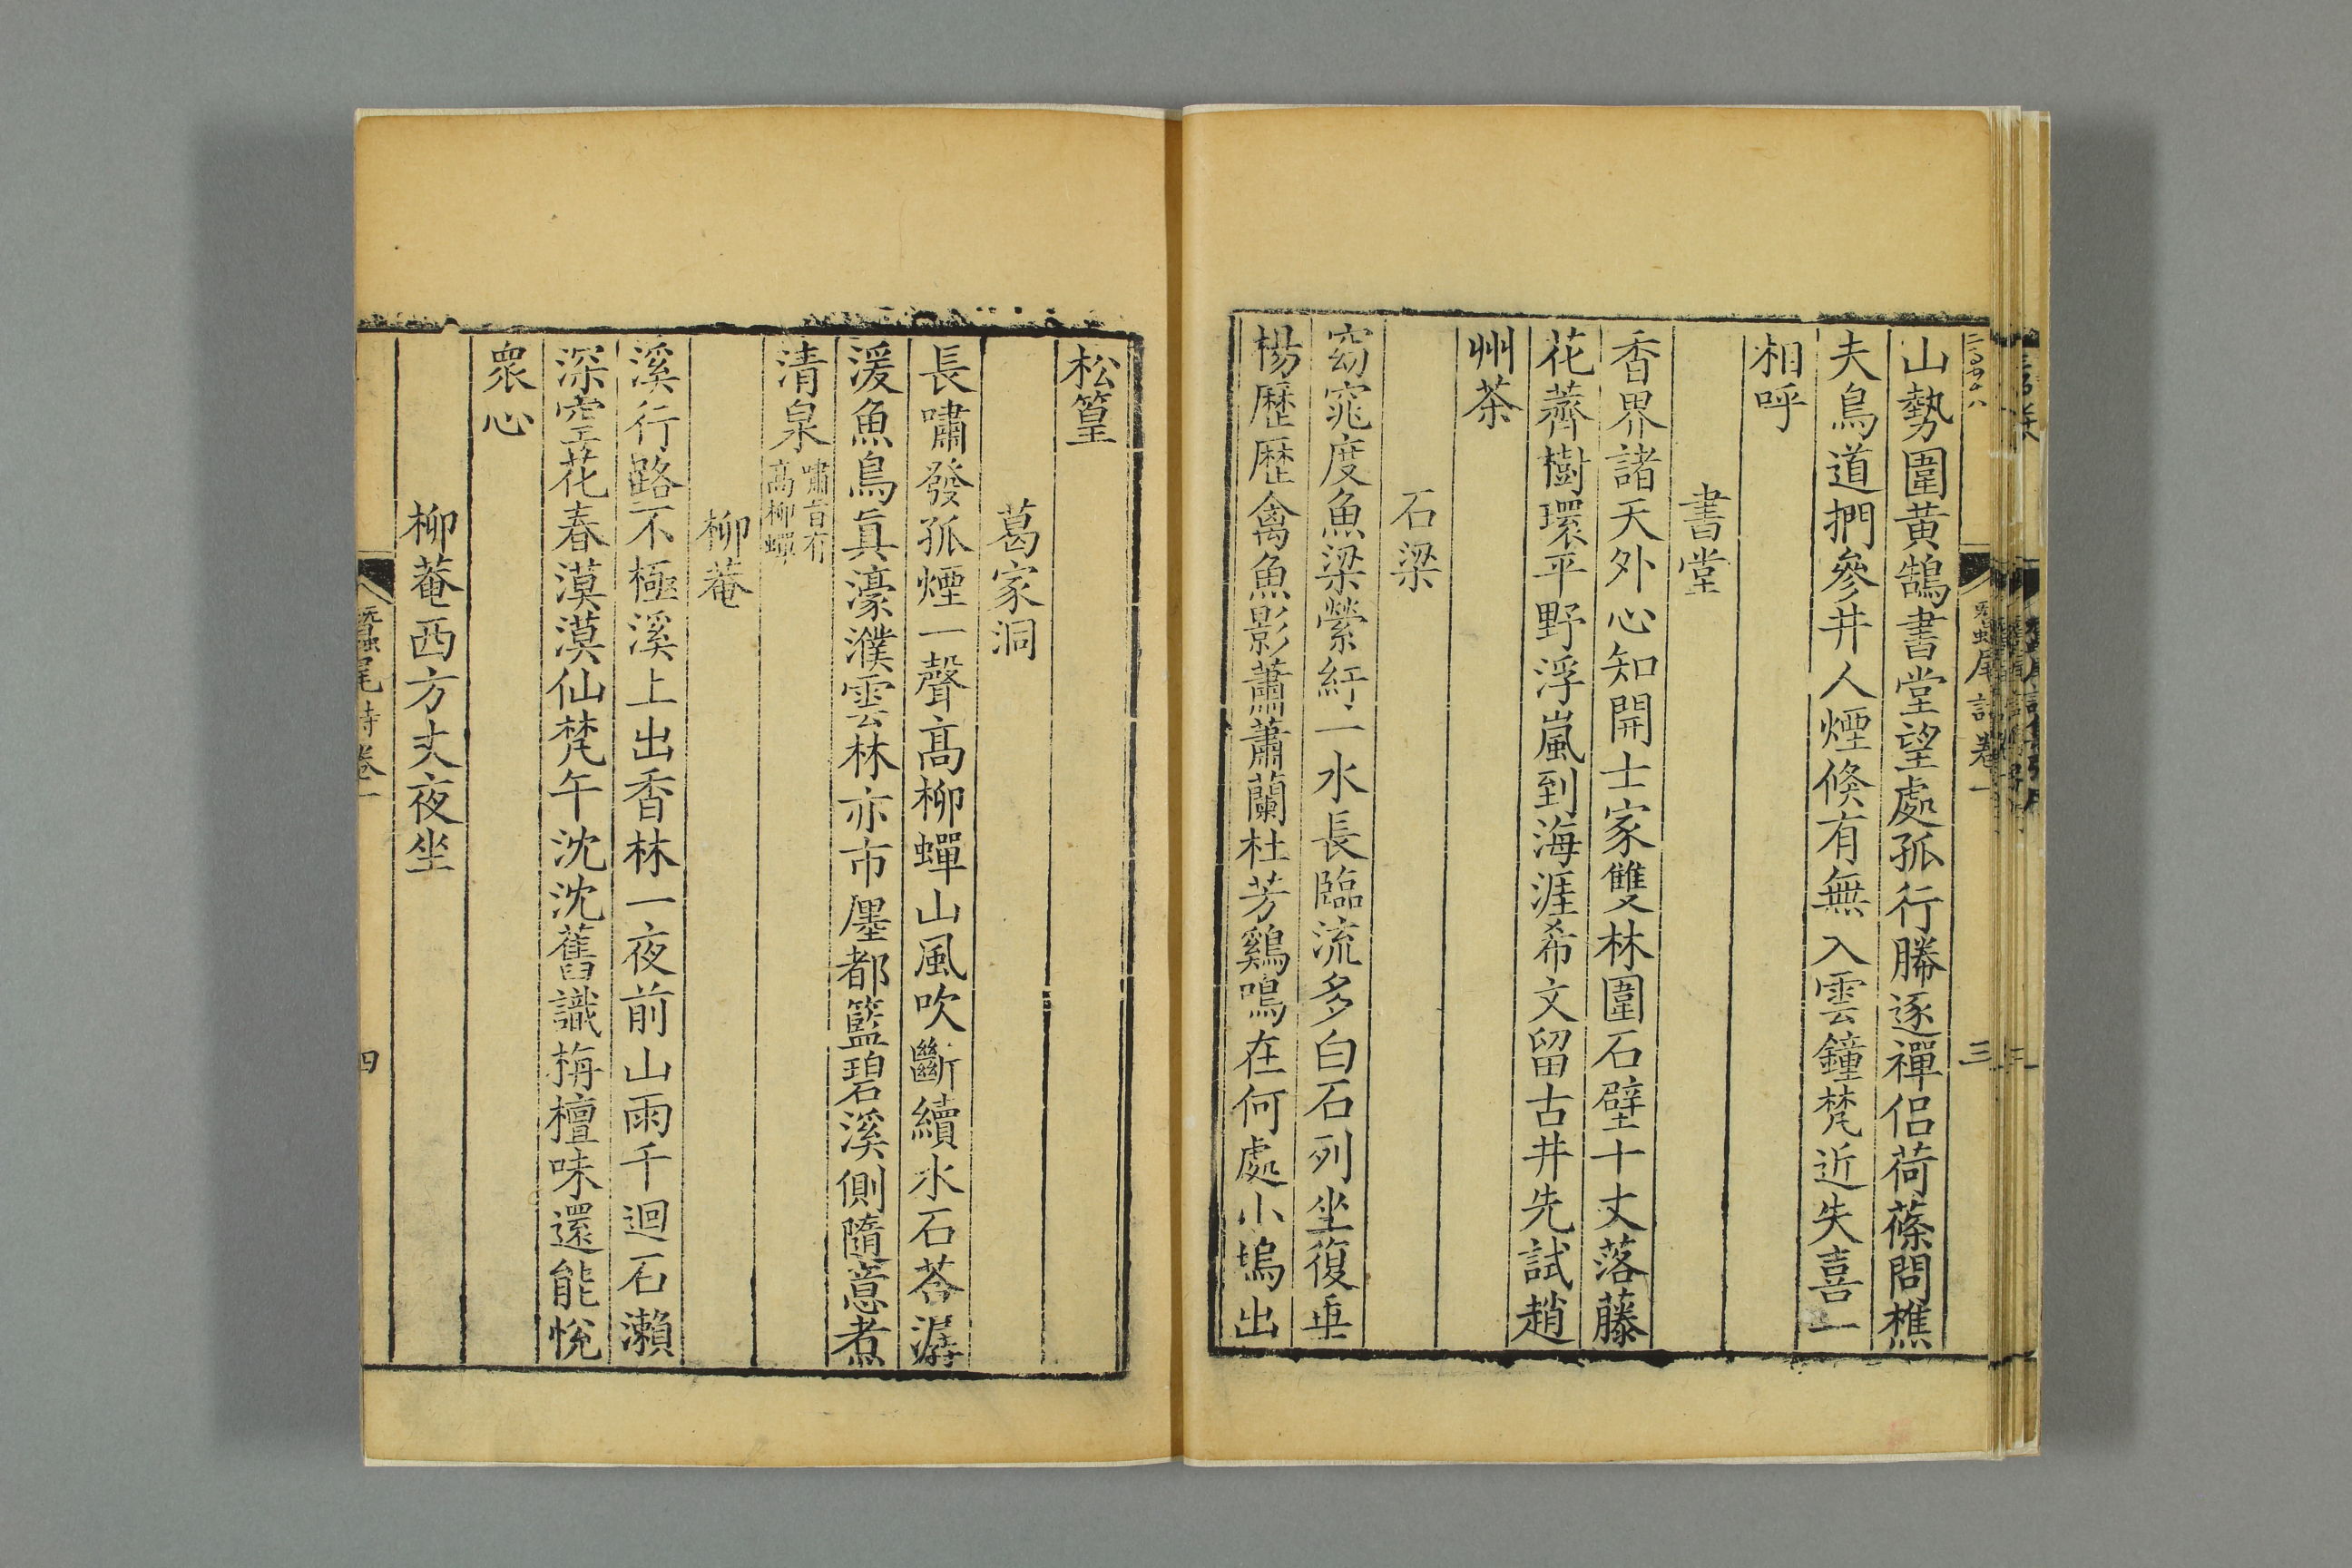 山勢圍黃鵠書堂望處孤行勝逐禪侶荷蓧問樵
夫鳥道捫參井人煙倏有無入雲鐘梵近失喜一
相呼
書堂
香界諸天外心知開士家雙林圍石壁十丈落藤
花薺樹環平野浮嵐到海涯希文留古井先試趙
州茶
石梁
窈窕度魚梁縈紆一水長臨流多白石列坐復垂
楊歷歷禽魚影蕭蕭蘭杜芳鷄鳴在何處小塢出
松篁
葛家洞
長嘯發孤煙一聲高柳蟬山風吹斷續水石荅潺
湲魚鳥眞濠濮雲林亦市廛都籃碧溪側隨意煮
清泉
嘯旨有
高柳蟬
柳菴
溪行路不極溪上出香林一夜前山雨千迴石瀨
深空花春漠漠仙梵午沈沈舊識栴檀味還能悅
衆心
柳菴西方丈夜坐
蠶尾詩卷一
三
四